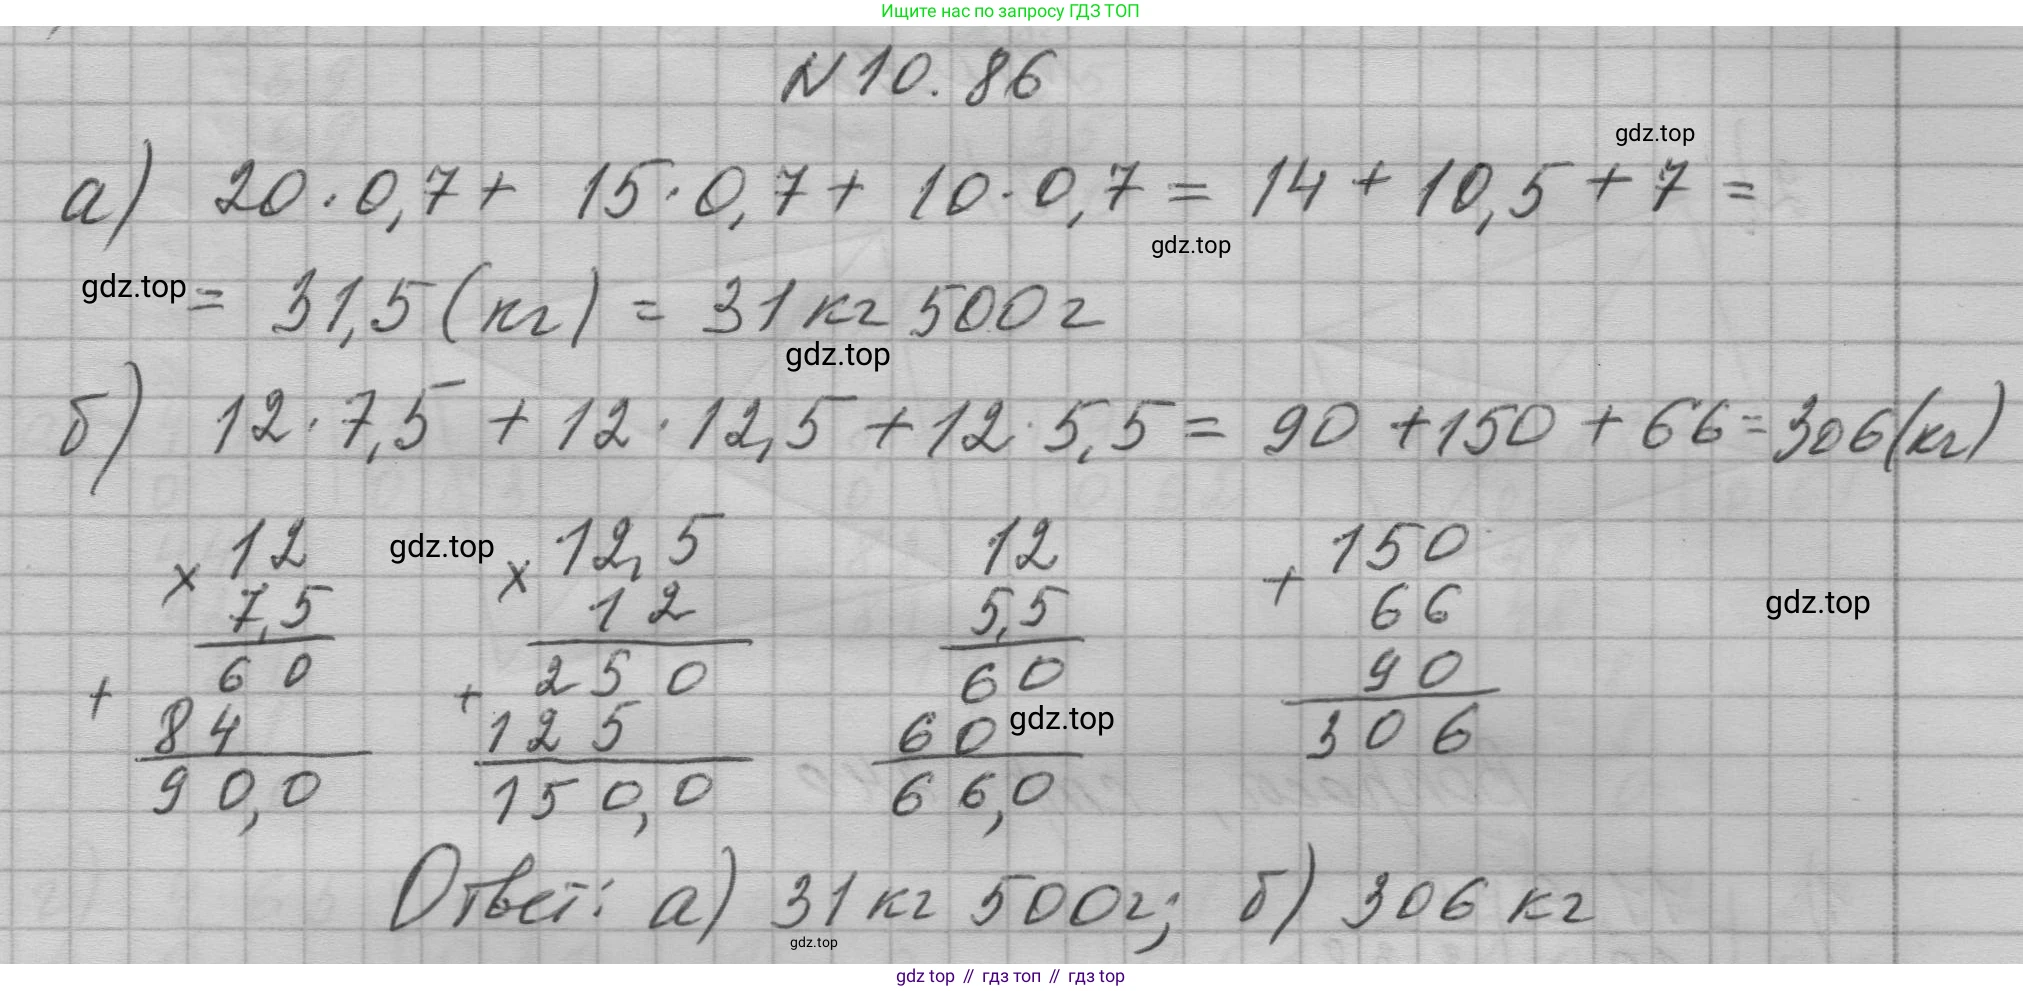 Ищите нас по запросу ГДЗ ТОП
N 10.86
gdz.top
а) 20·0,7+ 15·0,7+ 10·0,7 = 14 + 10,5 + 7 =
gdz.top
gdz.top
= 31,5 (кг) = 31 кг 500 г
gdz.top
б) 12·7,5 + 12·12,5 + 12·5,5 = 90 + 150 + 66 = 306 (кг)
× 12 gdz.top × 12,5 12 + 150
7,5 12 5,5 66 gdz.top
+ 60 + 250 60 90
84 125 60 gdz.top 306
90,0 150,0 66,0
Ответ: а) 31 кг 500 г; б) 306 кг
gdz.top
gdz top // гдз топ // гдз top